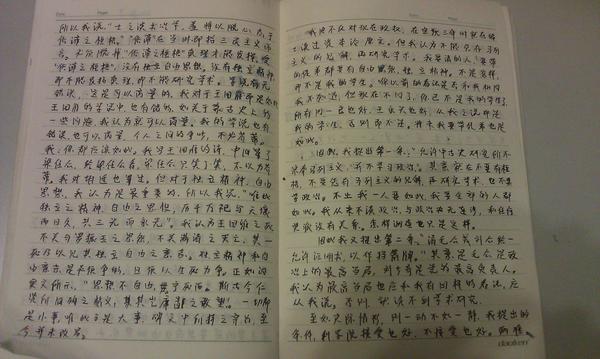 所以我说,“士之读书治学,盖将以脱心志于
俗谛之桎梏。”“俗谛”在当时即指三民主义而
言。必须脱掉“俗谛之桎梏”,真理才能发挥,受
“俗谛之桎梏”,没有自由思想,没有独立精神,
即不能发扬真理,即不能研究学术。学说有无
错误,这是可以商量的,我对于王国维即是如此。
王国维的学说中,也有错的,如关于蒙古史上的
一些问题,我认为就可以商量。我的学说也有
错误,也可以商量,个人之间的争吵,不必芥蒂。
我、你都应该如此。我写王国维诗,中间骂了
梁任公,给梁任公看,梁任公只笑了笑,不以为芥
蒂。我对胡适也骂过。但对于独立精神,自由
思想,我认为是最重要的,所以我说,“唯此
独立之精神,自由之思想,历千万祀,与天壤
而同久,共三光而永光”。我认为王国维之死,
不关与罗振玉之恩怨,不关满清之灭亡,其一
死乃以见其独立自由之意志。独立精神和自
由意志是必须争的,且须以生死力争。正如词
文所示,“思想而不自由,毋宁死耳。斯古今仁
贤所同殉之精义,其岂庸鄙之敢望。”一切都
是小事,惟此是大事,碑文中所持之宗旨,至
今并未改易。
我决不反对现在政权,在宣统三年时就在瑞
士读过资本论原文。但我认为不能先存马列
主义的见解,再研究学术。我要请的人,要带
的徒弟都有自由思想,独立精神。不是这样,
即不是我的学生。你以前的看法是否和我相同
我不知道,但现在不同了,你已不是我的学生了,
所有周一良也好,王永兴也好,从我之说即是
我的学生,否则即不是。将来我要带徒弟也是
如此。
因此,我提出第一条:“允许中古史研究所不
宗奉马列主义,并不学习政治。”其意就在不要有桎
梏,不要先有马列主义的见解,再研究学术,也不要
学政治。不止我一人要如此,我要全部的人都
如此。我从来不谈政治,与政治决无连涉,和任何
党派没有关系。怎样调查也只是这样。
因此我又提出第二条:“请毛公或刘公给一
允许证明书,以作挡箭牌。”其意是毛公是政
治上的最高当局,刘少奇是党的最高负责人。
我认为最高当局也应和我有同样的看法,应
从我说。否则,就谈不到学术研究。
至如实际情形,则一动不如一静,我提出的
条件,科学院接受也好,不接受也好。两难。